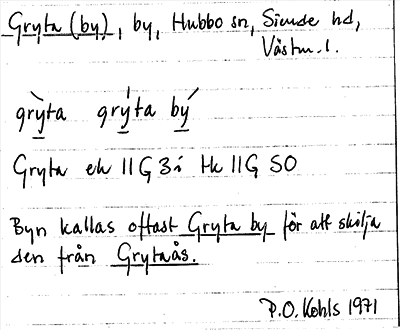 Gryta (by), by, Hubbo sn, Siende hd,
Västm. l.
grỳta grýta bý
Gryta ek 11G 3i Hk 11G SO
Byn kallas oftast Gryta by för att skilja
den från Grytaås.
P.O. Kohls 1971